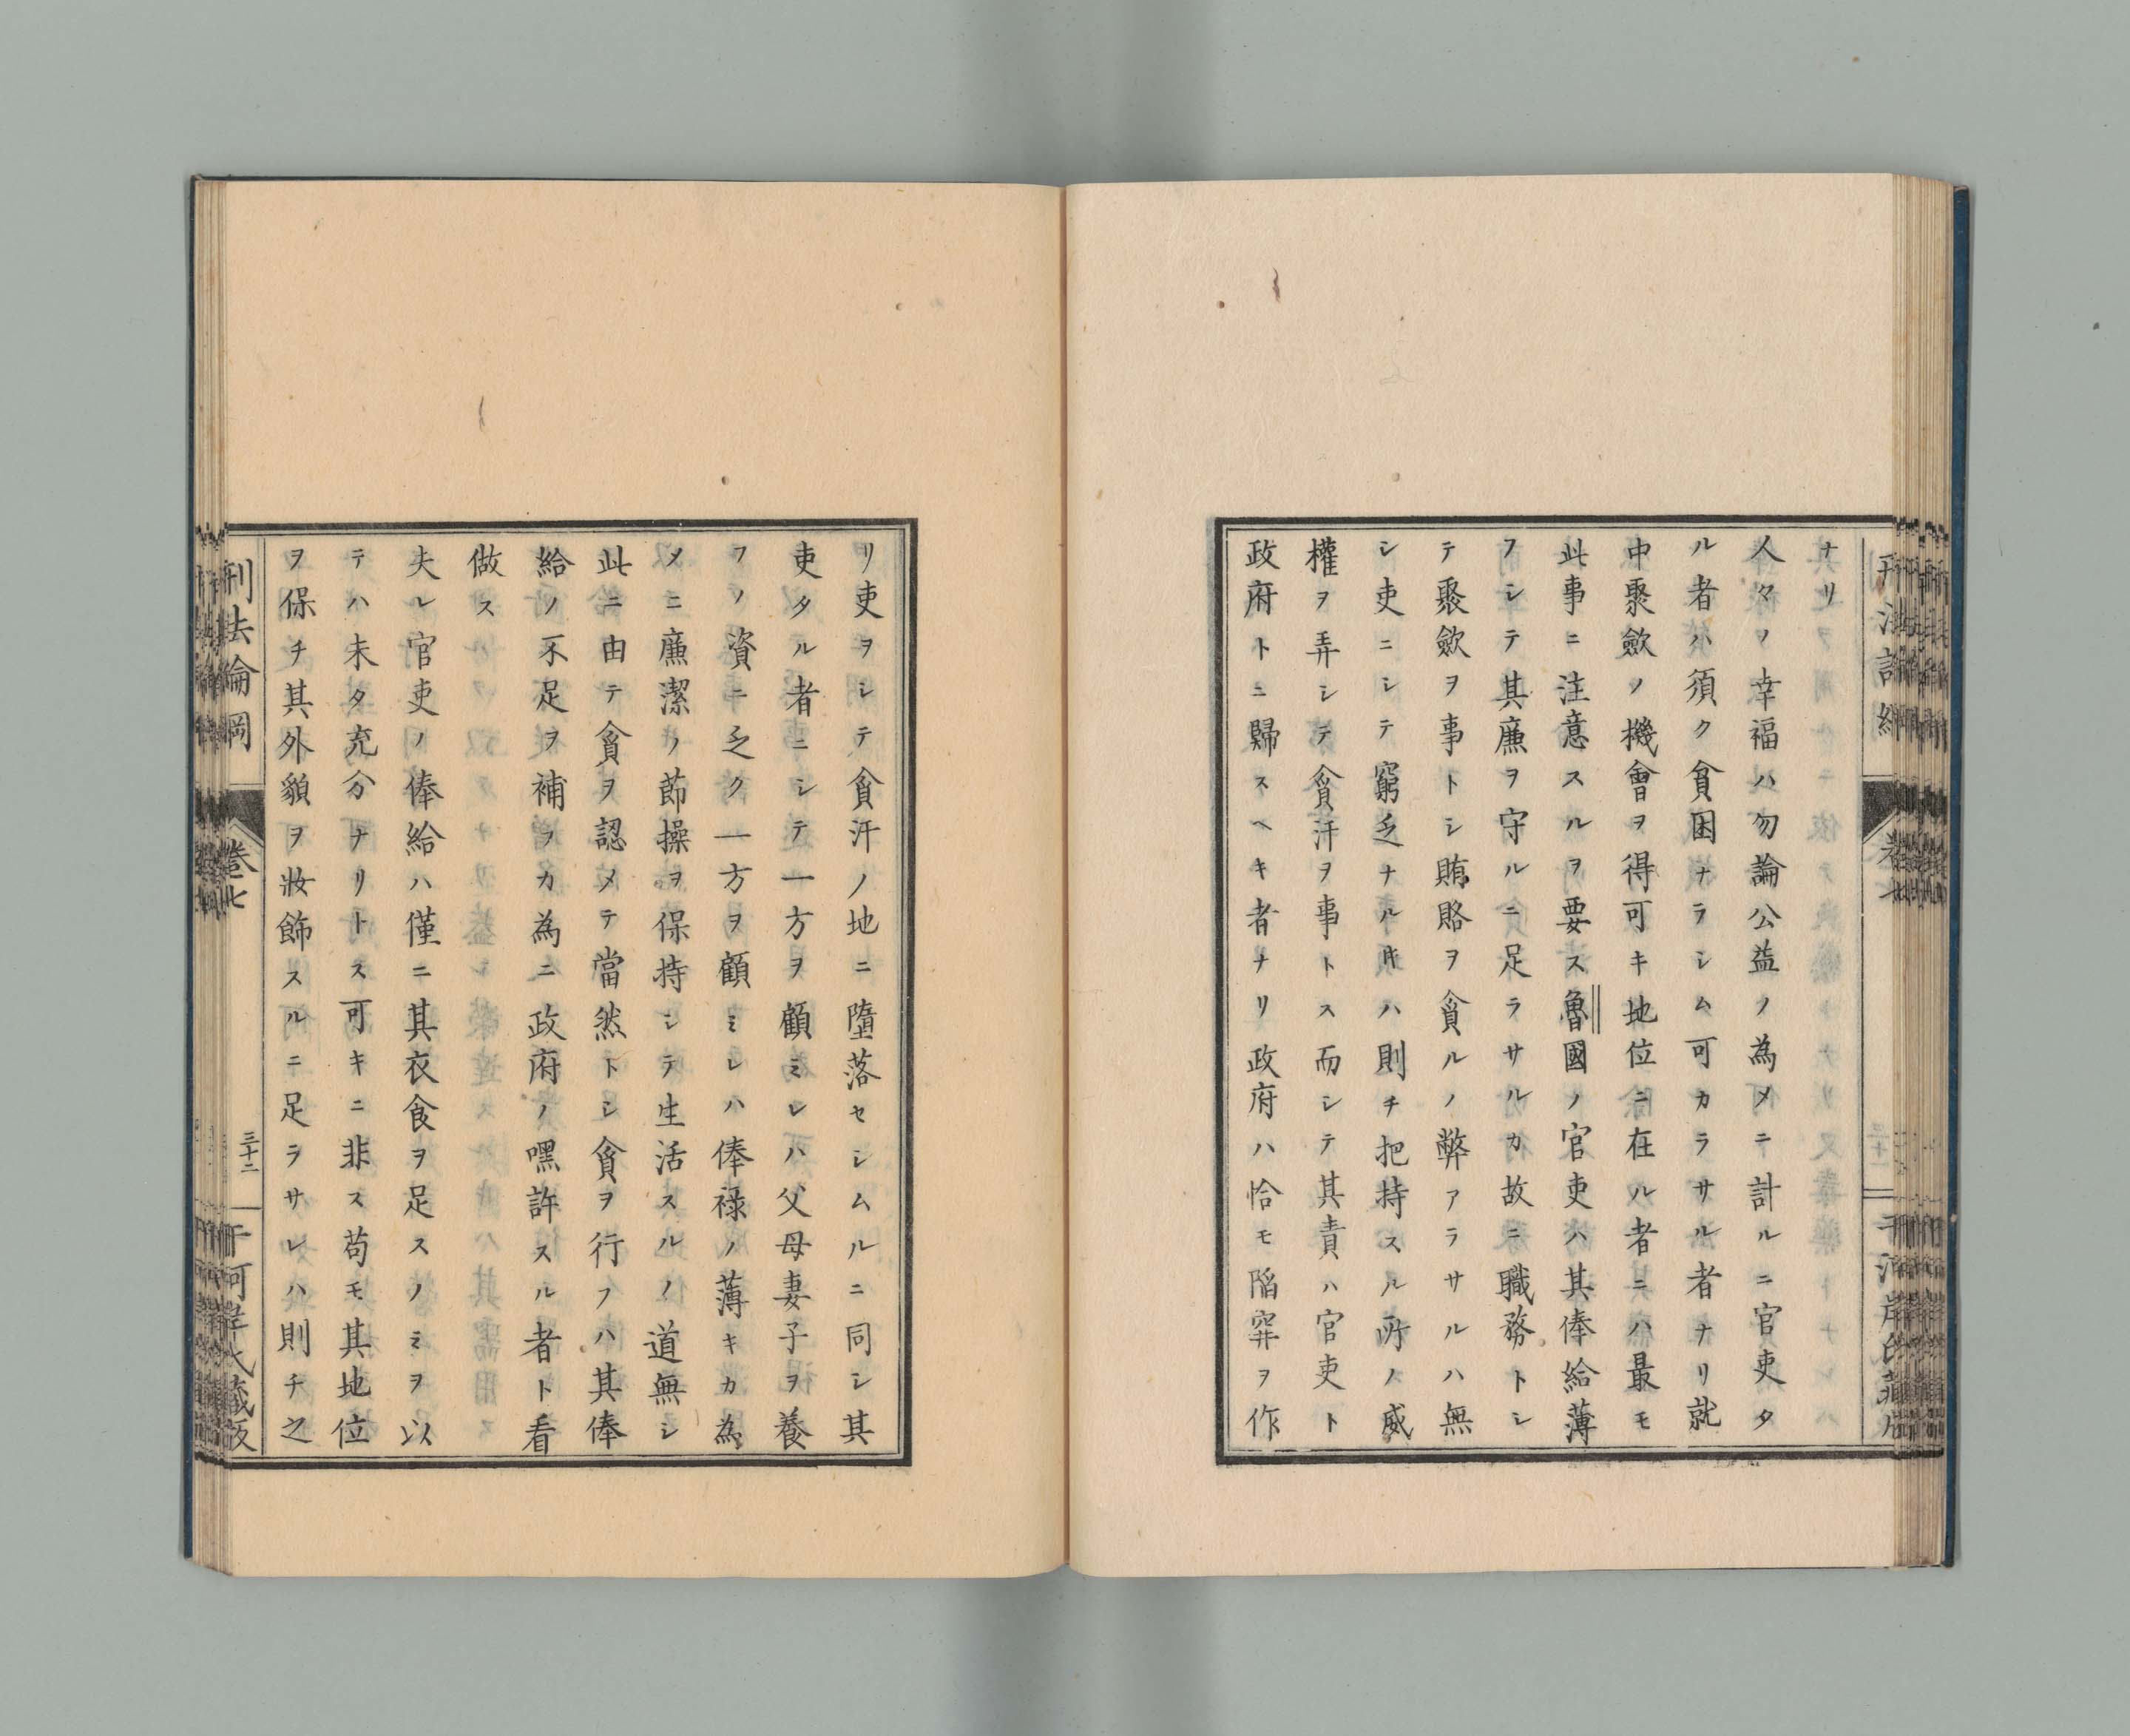 ナリ
人々ノ幸福ハ勿論公益ノ為メニ計ルニ官吏タ
ル者ハ須ク貧困ナラシム可カラサル者ナリ就
中聚斂ノ機會ヲ得可キ地位ニ在ル者ニハ最モ
此事ニ注意スルヲ要ス魯國ノ官吏ハ其俸給薄
フシテ其廉ヲ守ルニ足ラサルカ故ニ職務トシ
テ聚斂ヲ事トシ賄賂ヲ貪ルノ弊アラサルハ無
シ吏ニシテ窮乏ナル片ハ則チ把持スル所ノ威
權ヲ弄シテ貪汗ヲ事トス而シテ其責ハ官吏ト
政府トニ歸スヘキ者ナリ政府ハ恰モ陷穽ヲ作
リ吏ヲシテ貪汗ノ地ニ墮落セシムルニ同シ其
吏タル者ニシテ一方ヲ顧ミレハ父母妻子ヲ養
フノ資ニ乏ク一方ヲ顧ミレハ俸禄ノ薄キカ為
メニ廉潔ノ節操ヲ保持シテ生活スルノ道無シ
此ニ由テ貪ヲ認メテ當然トシ貪ヲ行フハ其俸
給ノ不足ヲ補フカ為ニ政府ノ嘿許スル者ト看
做ス
夫レ官吏ノ俸給ハ僅ニ其衣食ヲ足スノミヲ以
テハ未タ充分ナリトス可キニ非ス苟モ其地位
ヲ保チ其外貌ヲ妝飾スルニ足ラサレハ則チ之
刑法論綱
卷七
三十二